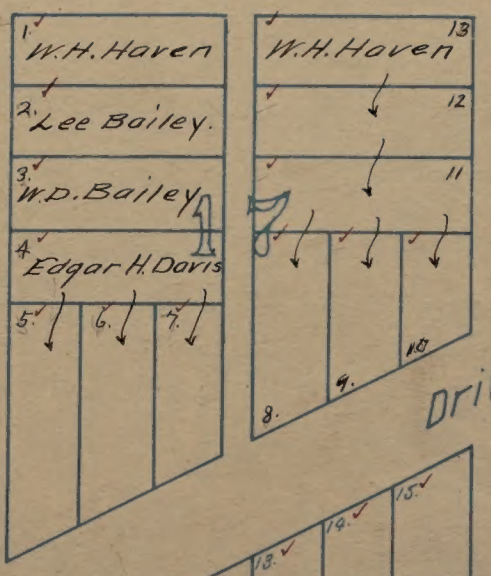 1. W.H. Haven
2. Lee Bailey.
3. W.D. Bailey
4 Edgar H. Davis
5. 6. 7.
17
13
W.H. Haven
12
11
8. 9. 10
Dri
13. 14. 15.